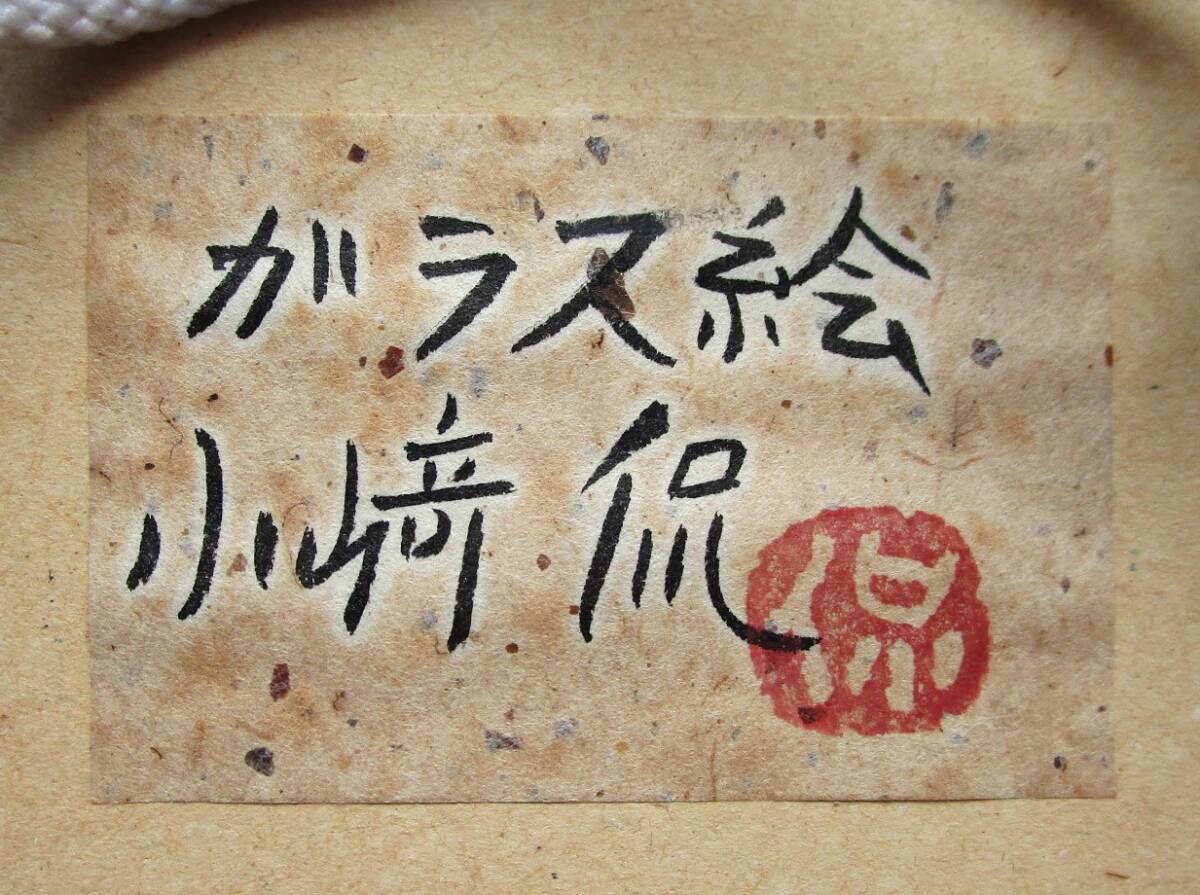 ガラス絵
小﨑侃
侃